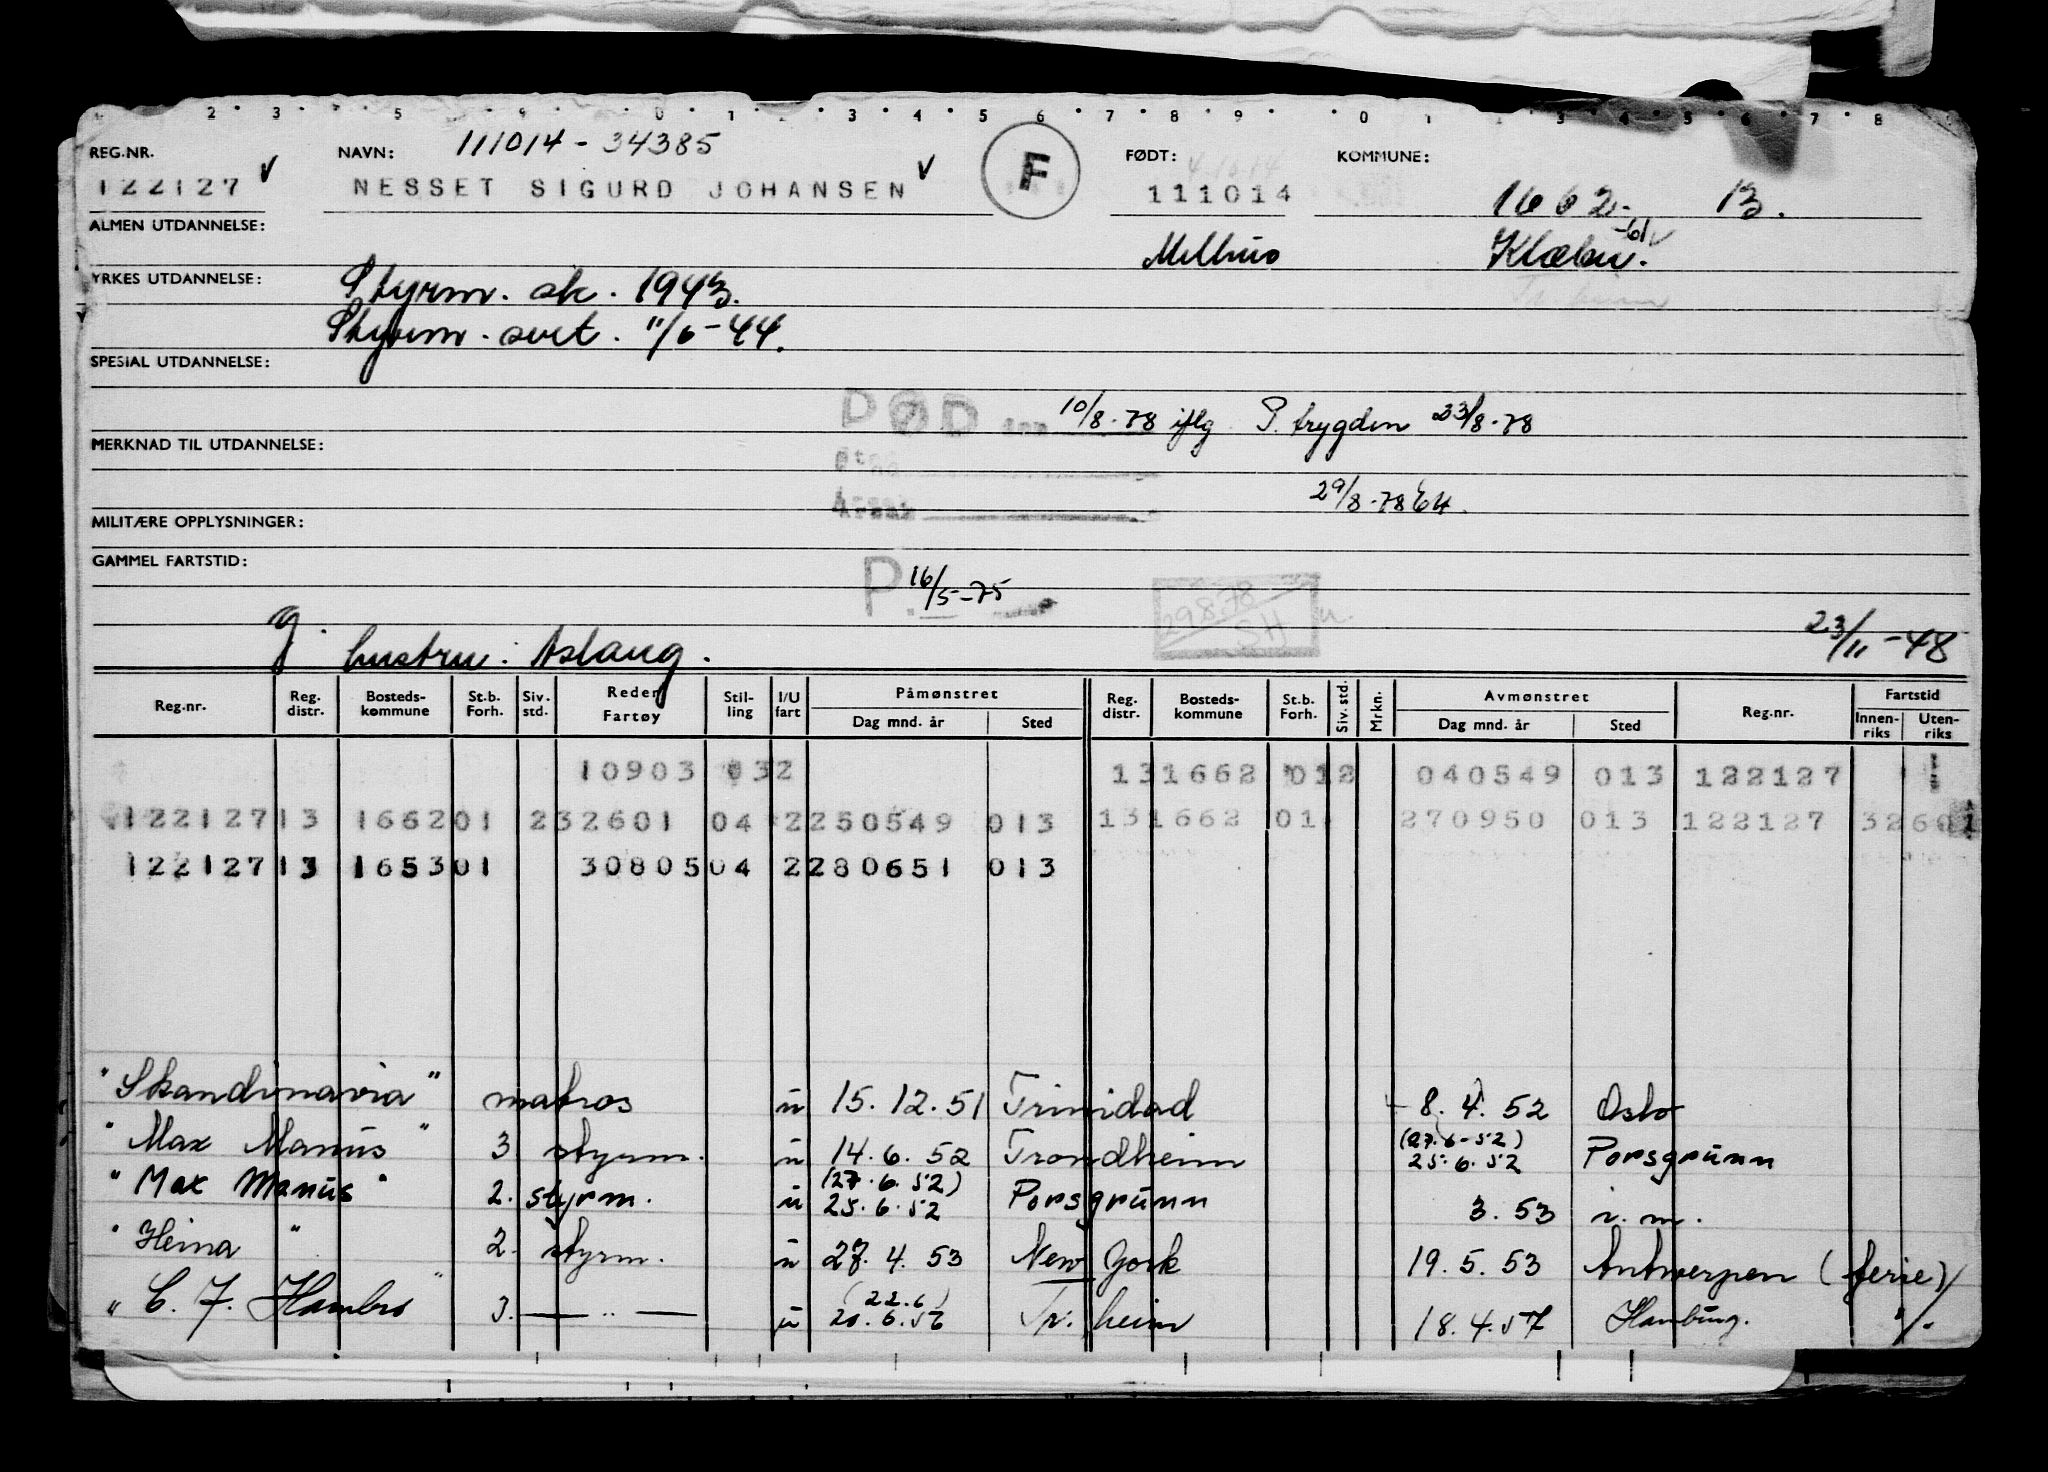 2 3 5 0 1 2 3 4 5 6 7 8 9 0 1 3 4 5 6 7 8
REG.NR. NAVN: 111014 - 34385 FØDT: KOMMUNE:
122127 NESSET SIGURD JOHANSEN F 111014 1662- 13.
ALMEN UTDANNELSE: Melhus Klæbu. -61
YRKES UTDANNELSE: Styrm. sk. 1943.
Styrm. sert. 11/6-44.
SPESIAL UTDANNELSE:
DØD den 10/8-78 iflg P. trygden 23/8-78
MERKNAD TIL UTDANNELSE:
Årsak 29/8-78
MILITÆRE OPPLYSNINGER:
GAMMEL FARTSTID:
P. 16/5-75
29878 SH
g. hustru: Aslaug. 23/11-48
Reg.nr. Reg. distr. Bosteds- kommune St.b. Forh. Siv. std. Reder Fartøy Stil- ling I/U fart Påmønstret Dag mnd. år Sted Reg. distr. Bosteds- kommune St.b. Forh. Siv. std. Mrkn. Avmønstret Dag mnd. år Sted Reg.nr. Fartstid Innen- riks Uten- riks
10903 032 131662 012 040549 013 122127 1
122127 13 1662 01 232601 04 2250549 013 131662 01 270950 013 122127 32601
122127 13 1653 01 30805 04 2280651 013
"Skandinavia" matros u 15.12.51 Trinidad 8.4.52 Oslo
"Max Manus" 3 styrm. u 14.6.52 Trondheim (27.6-52) 25.6.52 Porsgrunn
"Max Manus" 2. styrm. u (27.6.52) 25.6.52 Porsgrunn 3.53 i.m.
"Heina" 2. styrm. u 27.4.53 New York 19.5.53 Antwerpen (ferie)
"C. J. Hambro" 3. — " — u (22.6) 20.6.56 Tr.heim 18.4.57 Hamburg. "/.